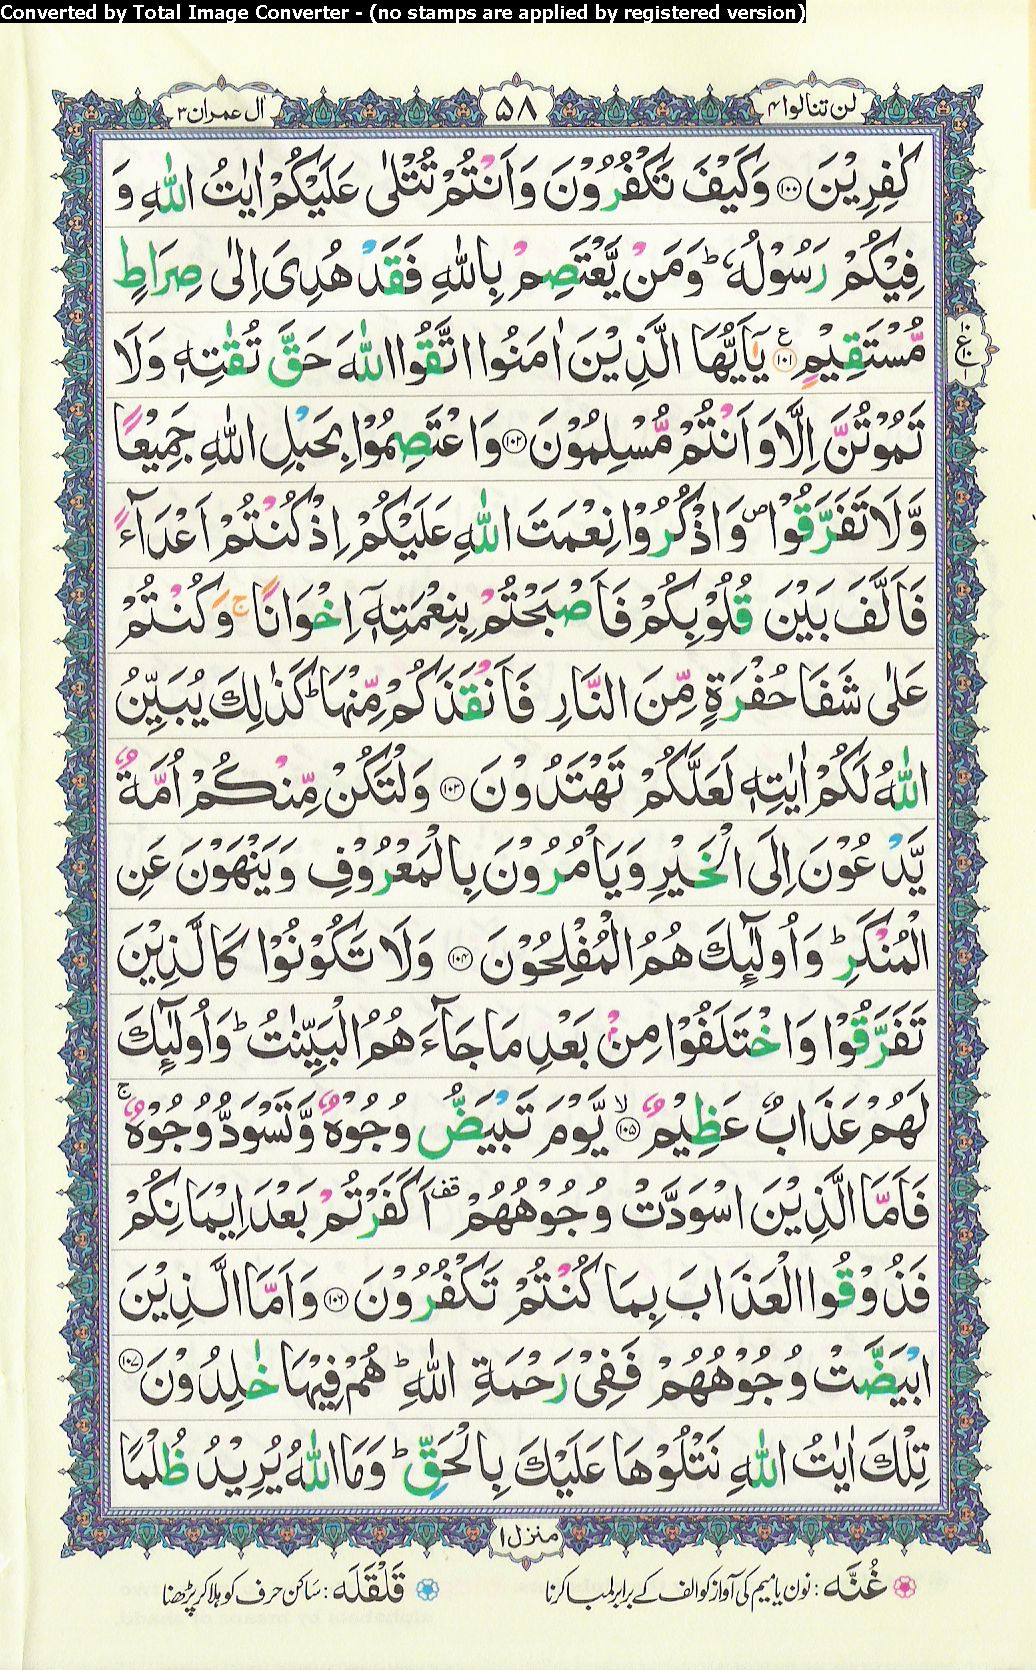 Converted by Total Image Converter - (no stamps are applied by registered version)
لن تنالوا ۴
۵۸
اٰل عمران ۳
كٰفِرِيْنَ ﴿۱۰۰﴾ وَكَيْفَ تَكْفُرُوْنَ وَاَنْتُمْ تُتْلٰى عَلَيْكُمْ اٰيٰتُ اللّٰهِ وَ
فِيْكُمْ رَسُوْلُهٗ ؕ وَمَنْ يَّعْتَصِمْ بِاللّٰهِ فَقَدْ هُدِىَ اِلٰى صِرَاطٍ
مُّسْتَقِيْمٍ ﴿۱۰۱﴾ ع يٰۤاَيُّهَا الَّذِيْنَ اٰمَنُوا اتَّقُوا اللّٰهَ حَقَّ تُقٰتِهٖ وَلَا
ع ۱۰ ۱۰ ۱
تَمُوْتُنَّ اِلَّا وَاَنْتُمْ مُّسْلِمُوْنَ ﴿۱۰۲﴾ وَاعْتَصِمُوْا بِحَبْلِ اللّٰهِ جَمِيْعًا
وَّلَا تَفَرَّقُوْا ص وَاذْكُرُوْا نِعْمَتَ اللّٰهِ عَلَيْكُمْ اِذْ كُنْتُمْ اَعْدَآءً
فَاَلَّفَ بَيْنَ قُلُوْبِكُمْ فَاَصْبَحْتُمْ بِنِعْمَتِهٖۤ اِخْوَانًا ج وَكُنْتُمْ
عَلٰى شَفَا حُفْرَةٍ مِّنَ النَّارِ فَاَنْقَذَكُمْ مِّنْهَا ؕ كَذٰلِكَ يُبَيِّنُ
اللّٰهُ لَكُمْ اٰيٰتِهٖ لَعَلَّكُمْ تَهْتَدُوْنَ ﴿۱۰۳﴾ وَلْتَكُنْ مِّنْكُمْ اُمَّةٌ
يَّدْعُوْنَ اِلَى الْخَيْرِ وَيَاْمُرُوْنَ بِالْمَعْرُوْفِ وَيَنْهَوْنَ عَنِ
الْمُنْكَرِ ؕ وَاُولٰٓئِكَ هُمُ الْمُفْلِحُوْنَ ﴿۱۰۴﴾ وَلَا تَكُوْنُوْا كَالَّذِيْنَ
تَفَرَّقُوْا وَاخْتَلَفُوْا مِنْۢ بَعْدِ مَا جَآءَهُمُ الْبَيِّنٰتُ ؕ وَاُولٰٓئِكَ
لَهُمْ عَذَابٌ عَظِيْمٌ ﴿۱۰۵﴾ لا يَّوْمَ تَبْيَضُّ وُجُوْهٌ وَّتَسْوَدُّ وُجُوْهٌ ج
فَاَمَّا الَّذِيْنَ اسْوَدَّتْ وُجُوْهُهُمْ قف اَكَفَرْتُمْ بَعْدَ اِيْمَانِكُمْ
فَذُوْقُوا الْعَذَابَ بِمَا كُنْتُمْ تَكْفُرُوْنَ ﴿۱۰۶﴾ وَاَمَّا الَّذِيْنَ
ابْيَضَّتْ وُجُوْهُهُمْ فَفِىْ رَحْمَةِ اللّٰهِ ؕ هُمْ فِيْهَا خٰلِدُوْنَ ﴿۱۰۷﴾
تِلْكَ اٰيٰتُ اللّٰهِ نَتْلُوْهَا عَلَيْكَ بِالْحَقِّ ؕ وَمَا اللّٰهُ يُرِيْدُ ظُلْمًا
منزل ۱
غُنَّه : نون یا میم کی آواز کو الف کے برابر لمبا کرنا
قَلْقَلَه : ساکن حرف کو ہلا کر پڑھنا